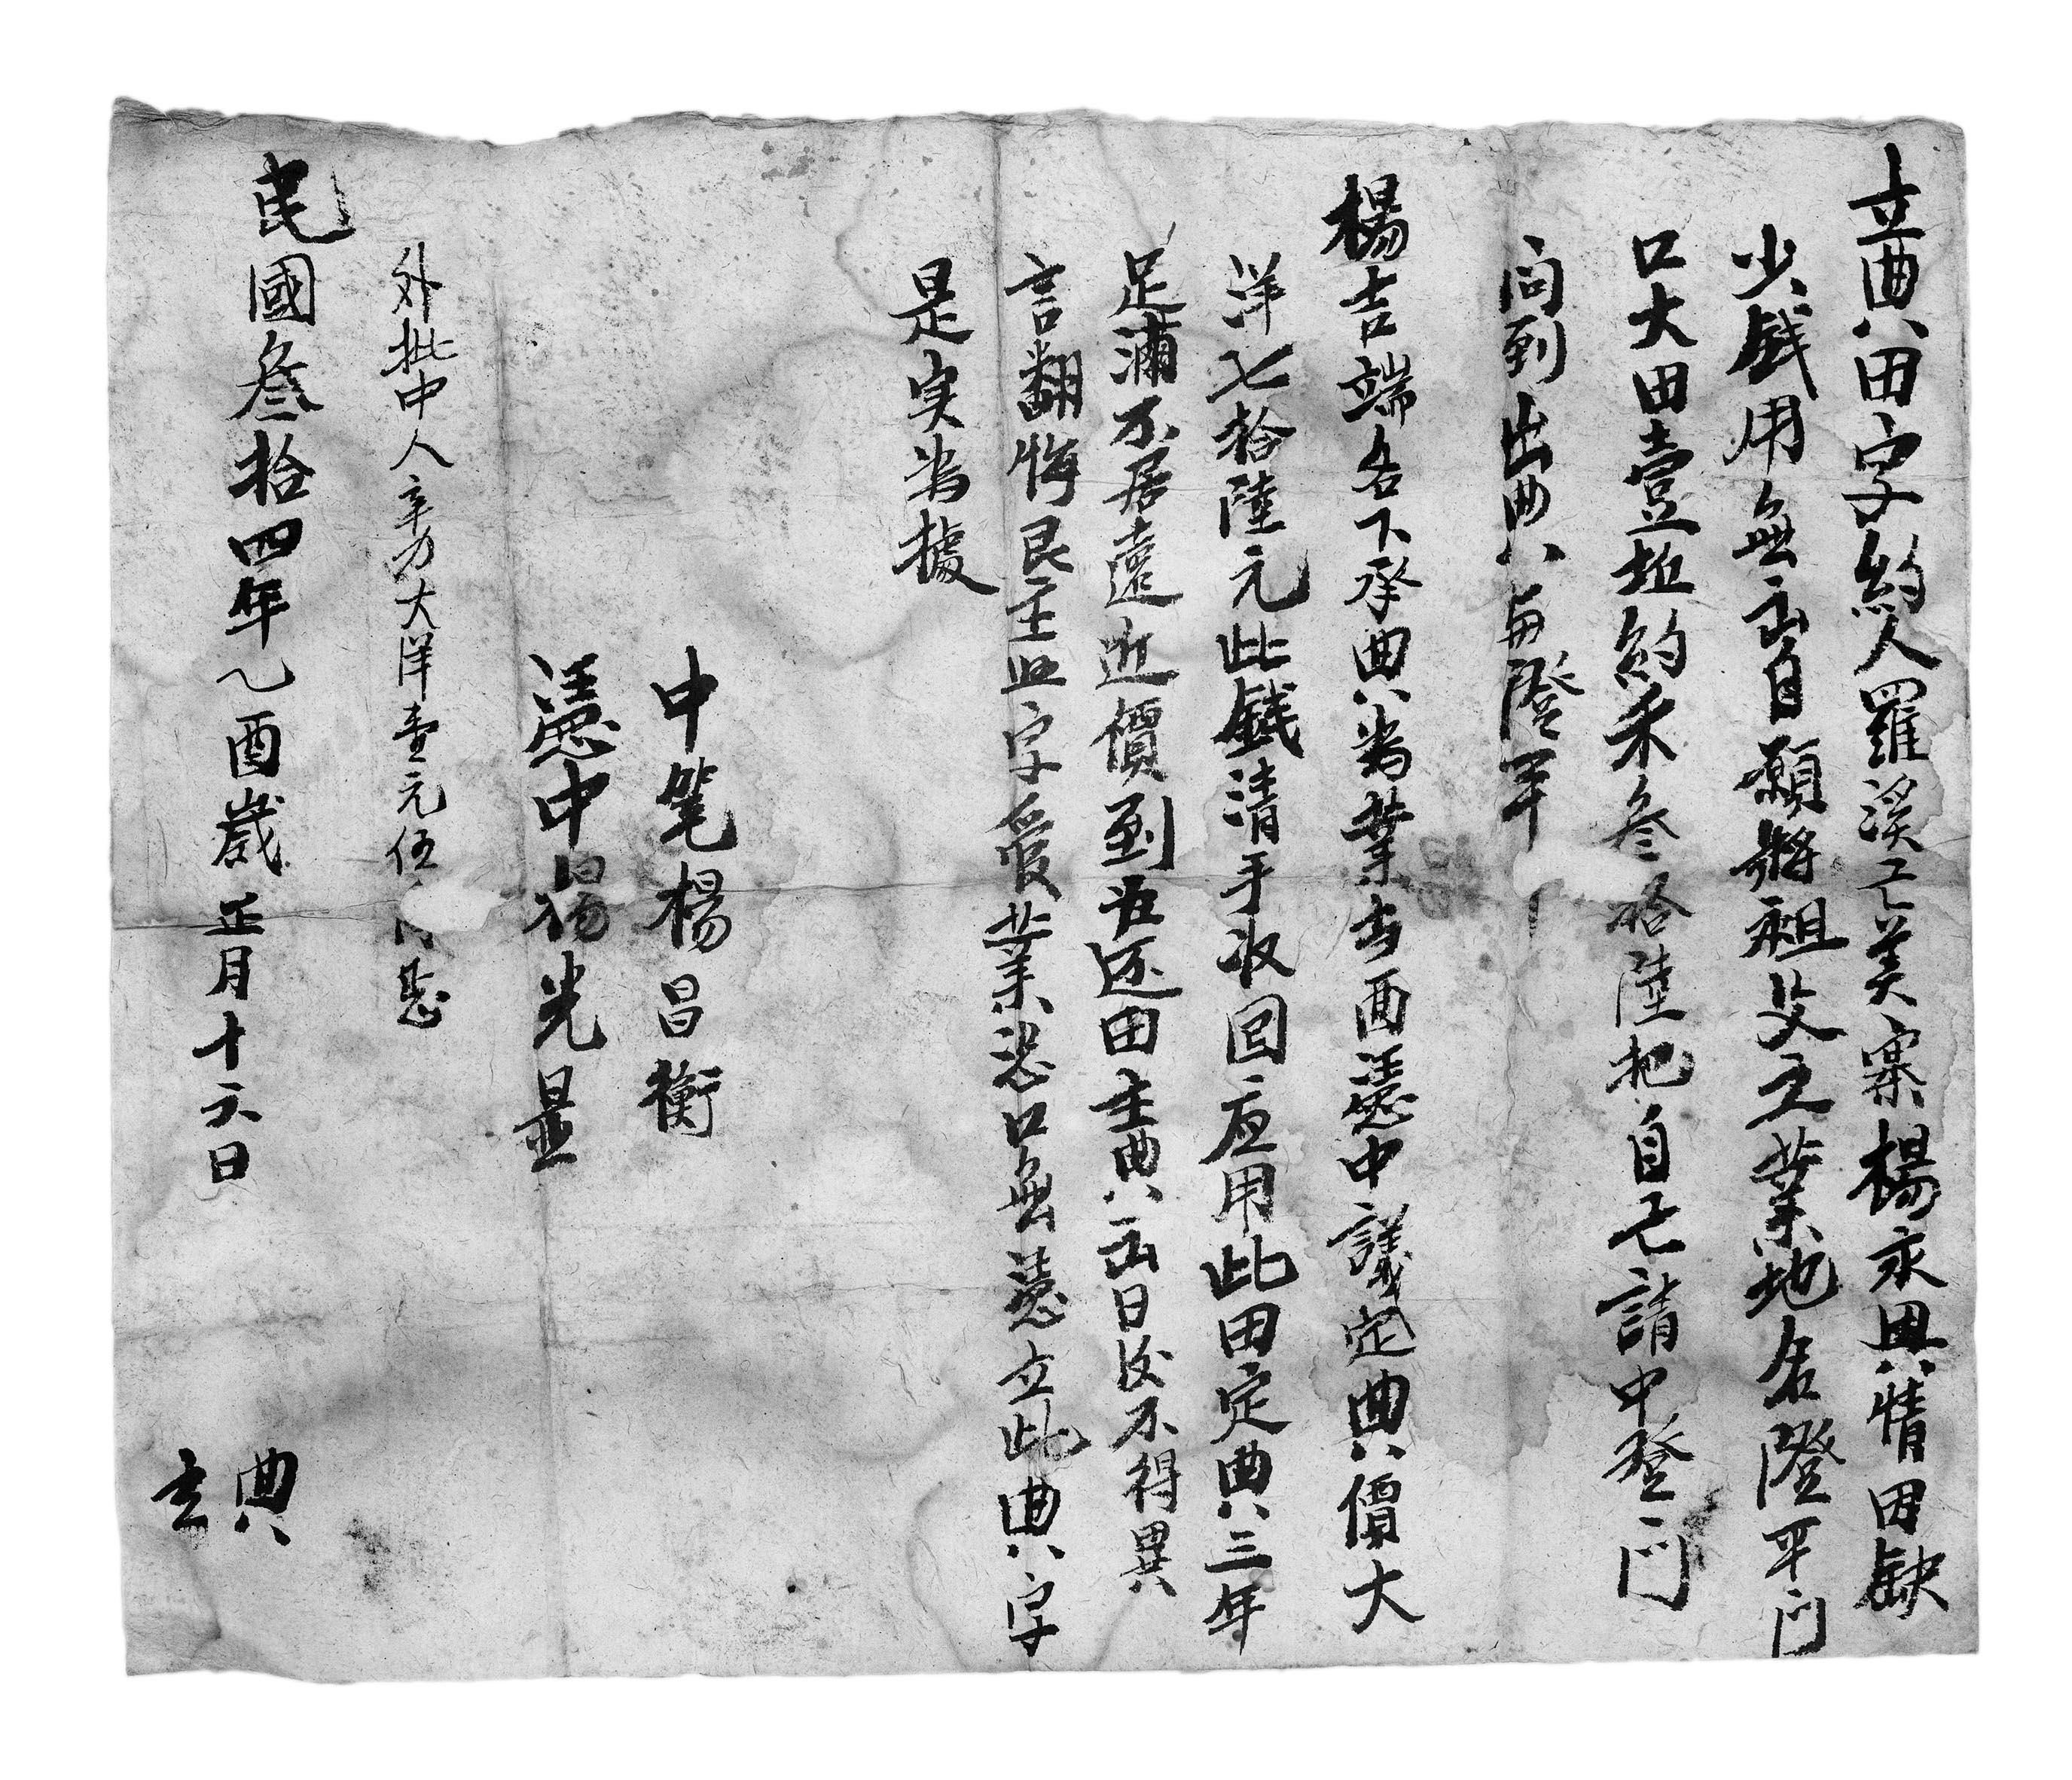 立典田字約人羅溪芒美寨楊永興情因缺
少錢用無出自願將祖父之業地名隥平门
口大田壹坵約禾叁拾陸把自己請中登门
问到出典与隥
楊吉端名下承典為業当面憑中議定典價大
洋七拾陸元此錢清手收回应用此田定典三年
足滿不居遠近價到为还田主典出日后不得異
言翻悔艮主照字受業恐口無憑立此典字
是实為據
中笔楊昌衡
憑中楊光显
外批中人辛力大洋壹元伍
民國叁拾四年乙酉歲正月十六日
典
主